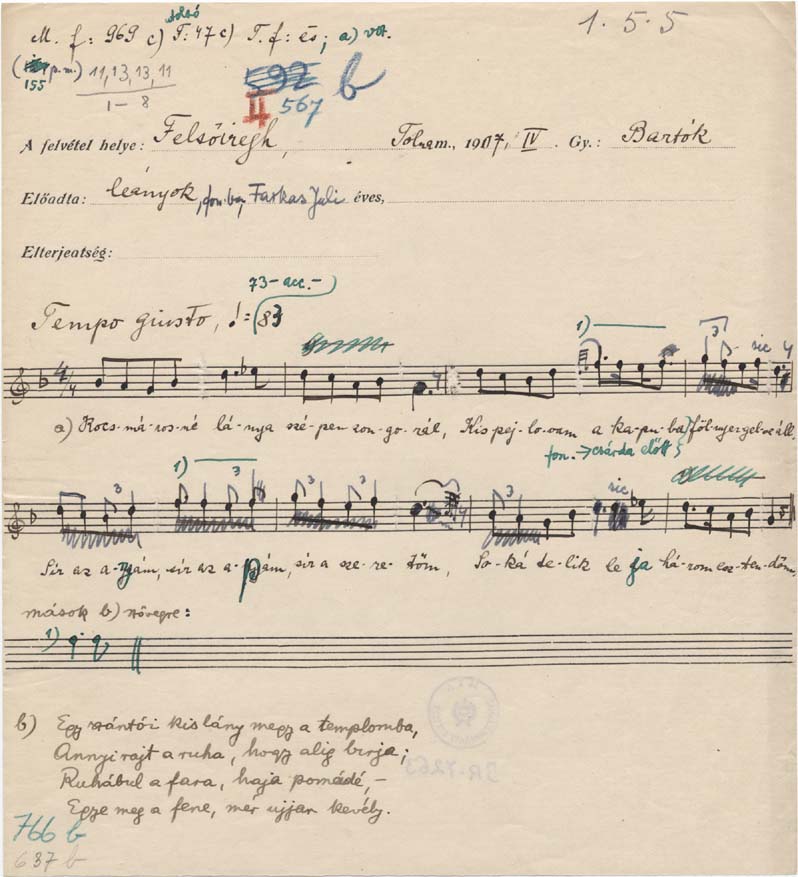 alsó
M. f: 969 c) T: 47 c) T. f: és; a) vált.
1. 5. 5
(p.m.) 11, 13, 13, 11
155
1 – 8
592 b
II 567
A felvétel helye: Felsőiregh, Tolnam., 1907, IV. Gy.: Bartók
Előadta: leányok, fon-ban, Farkas Juli éves,
Elterjeatség:
73 – acc. –
Tempo giusto, ♩= 83
1) 3 sic 4
4/4
a) Kocs-má-ros-né lá-nya szé-pen zon-go-rál, Kis pej-lo-vam a ka-pu-ba föl-nyergel-ve áll.
fon. → csárda előtt
1) 3 3 3 3 sic
Sir az a-nyám, sir az a-pám, sir a sze-re-tőm, So-ká te-lik le ja há-rom esz-ten-dőm,
mások b) szövegre:
1)
b) Egy szántói kis lány megy a templomba,
Annyi rajt a ruha, hogy alig birja;
Ruhábul a fara, haja pomádé, –
Egye meg a fene, mér ujjan kevély.
BR-4263
766 b
637 b